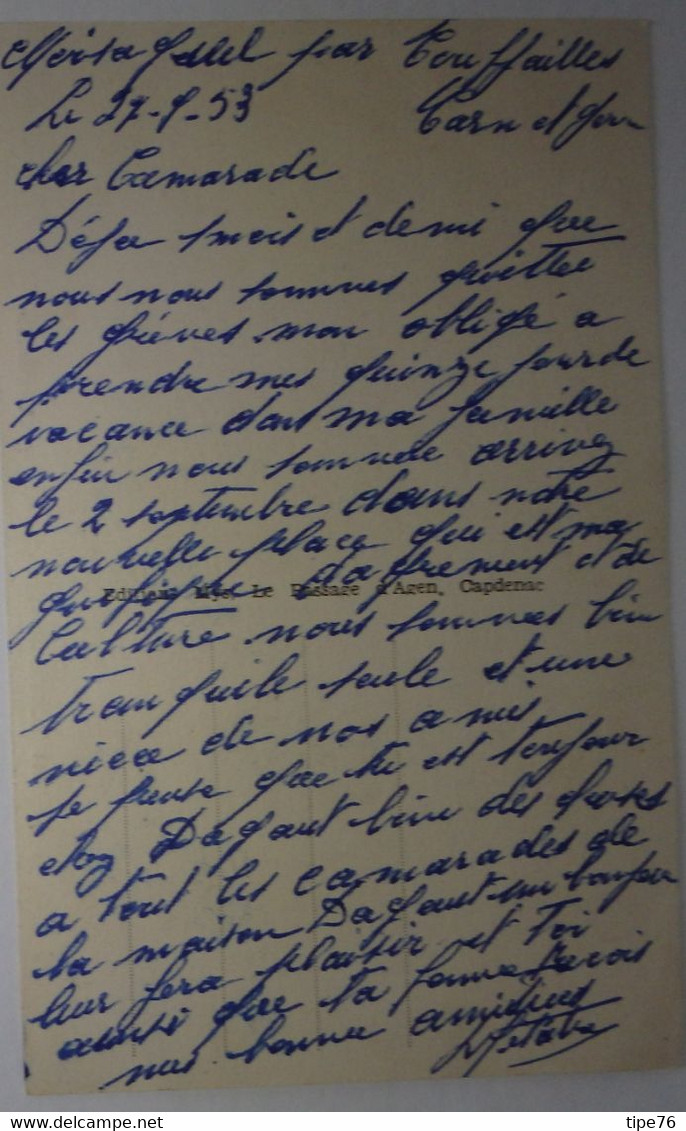 par Touffailles
Le 27-9-53 Tarn et Gne
cher Camarade
Déja 1 mois et demi que
nous nous sommes quittee
les grèves mon obligé a
prendre mes quinze jour de
vacance dans ma famille
enfin nous somme arrivez
le 2 septembre dans notre
nouvelle place qui est ma
d'agrement et de
Editions Le Passage d'Agen, Capdenac
Culture nous sommes bien
tranquile seule et une
niece de nos amis
je pense que tu est toujour
chez Dagaut bien des choses
a tout les camarades de
la maison Dagaut un bonjour
leur fera plaisir et Toi
ainsi que ta femme recois
nos bonne amitiees
www.delcampe.net
tipe76